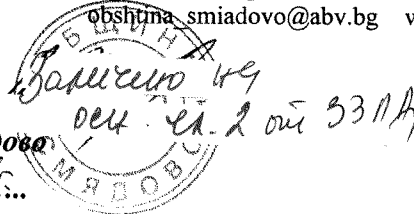 obshtina_smiadovo@abv.bg
ОБЩИНА
Заличено на
осн. чл. 2 от ЗЗЛД
ово
СМЯДОВО